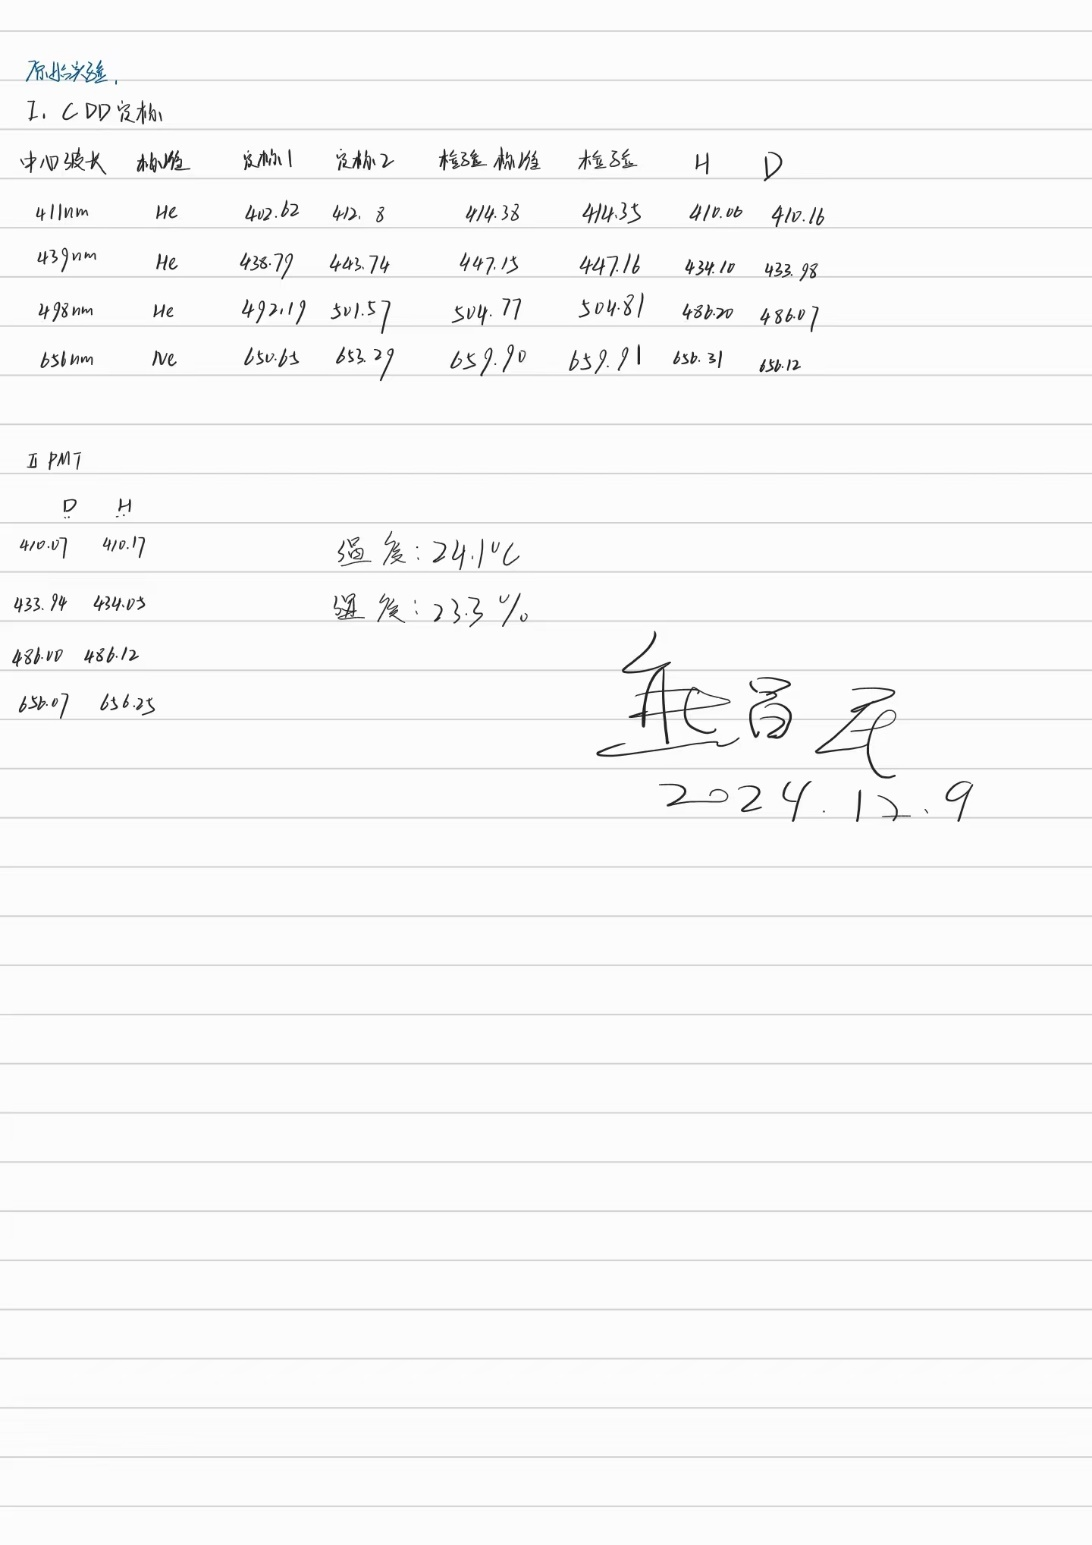 原始实验.
I. CDD定标
中心波长 标准 定标1 定标2 检验标准 检验 H D
411nm He 402.62 412.8 414.38 414.35 410.06 410.16
439nm He 438.79 443.74 447.15 447.16 434.10 433.98
498nm He 492.19 501.57 504.77 504.81 486.20 486.07
656nm Ne 650.65 653.29 659.90 659.91 656.31 656.12
II PMT
D H
410.07 410.17
温度:24.1℃
433.94 434.05
湿度:23.3%
486.00 486.12
656.07 656.25
2024.12.9